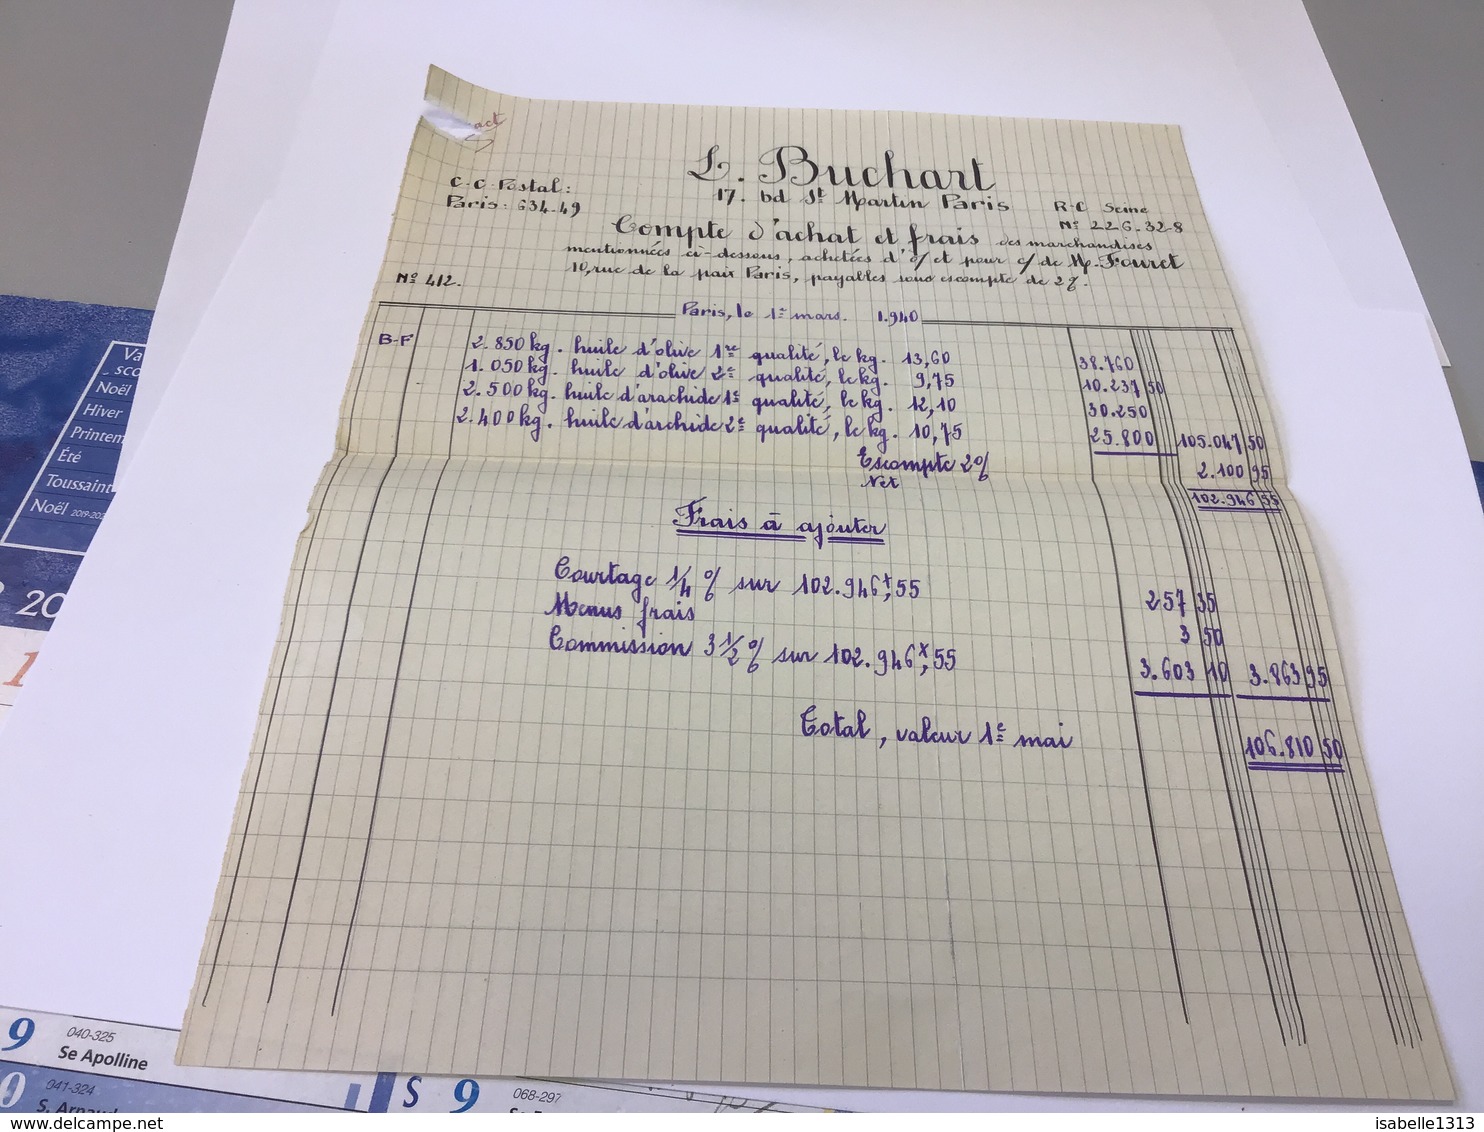 act
L. Buchart
17. bd St Martin Paris
C.C. Postal:
Paris: 634.49
R.C Seine
No 226.32-8
Compte d'achat et frais des marchandises
mentionnées ci-dessous, achetées d'o/ et pour c/ de M. Fouret
10, rue de la paix Paris, payables sous escompte de 2%.
No 412.
Paris, le 1er mars. 1.940
B-F
2.850 kg. huile d'olive 1re qualité, le kg. 13,60 38.760
1.050 kg. huile d'olive 2e qualité, le kg. 9,75 10.237 50
2.500 kg. huile d'arachide 1e qualité, le kg. 12,10 30.250
2.400 kg. huile d'archide 2e qualité, le kg. 10,75 25.800 105.047 50
Escompte 2% 2.100 95
Net 102.946 55
Frais à ajouter
Courtage 1/4 % sur 102.946f,55 257 35
Menus frais 3 50
Commission 3 1/2 % sur 102.946f,55 3.603 10 3.863 95
Total, valeur 1e mai 106.810 50
Va
sco
Noël
Hiver
Printem
Été
Toussaint
Noël 2019-202
20
1
9 040-325
Se Apolline
0 041-324
S. Arnaud
S 9 068-297
isabelle1313